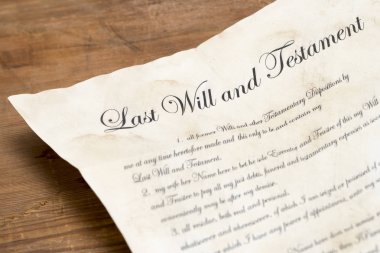 Last Will and Testament
1. all former Wills and other Testamentary Dispositions by
me at any time heretofore made and this only to be and contain my
Last Will and Testament.
2. my wife her Name here to but be sole Executrix and Trustee of this my Will
and Trustee to pay all my just debts, funeral and testamentary expenses as soon
conveniently may be after my demise.
3. all residue, both real and personal,
whatsoever and wheresoever, of which I am seized or possessed of
which I have any power of appointment, unto my
Name here does not survive